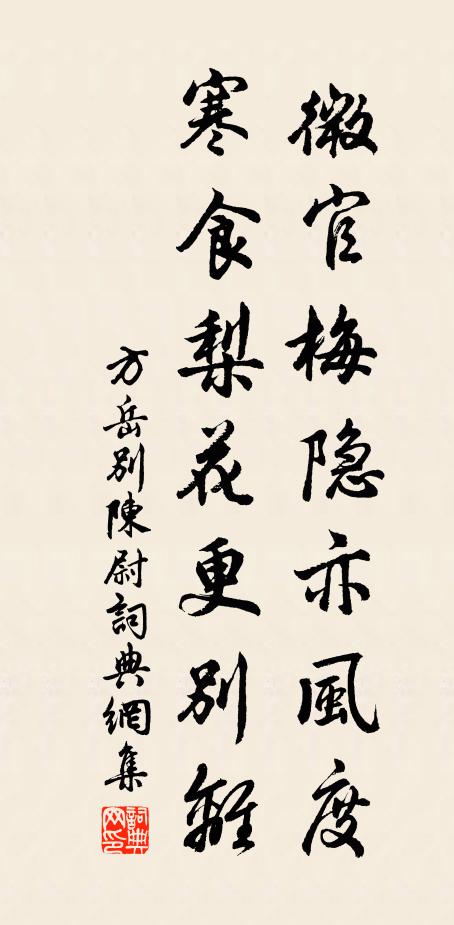 微官梅隐亦風度
寒食梨花更別離
方岳別陳尉詞典網集
詞典網印